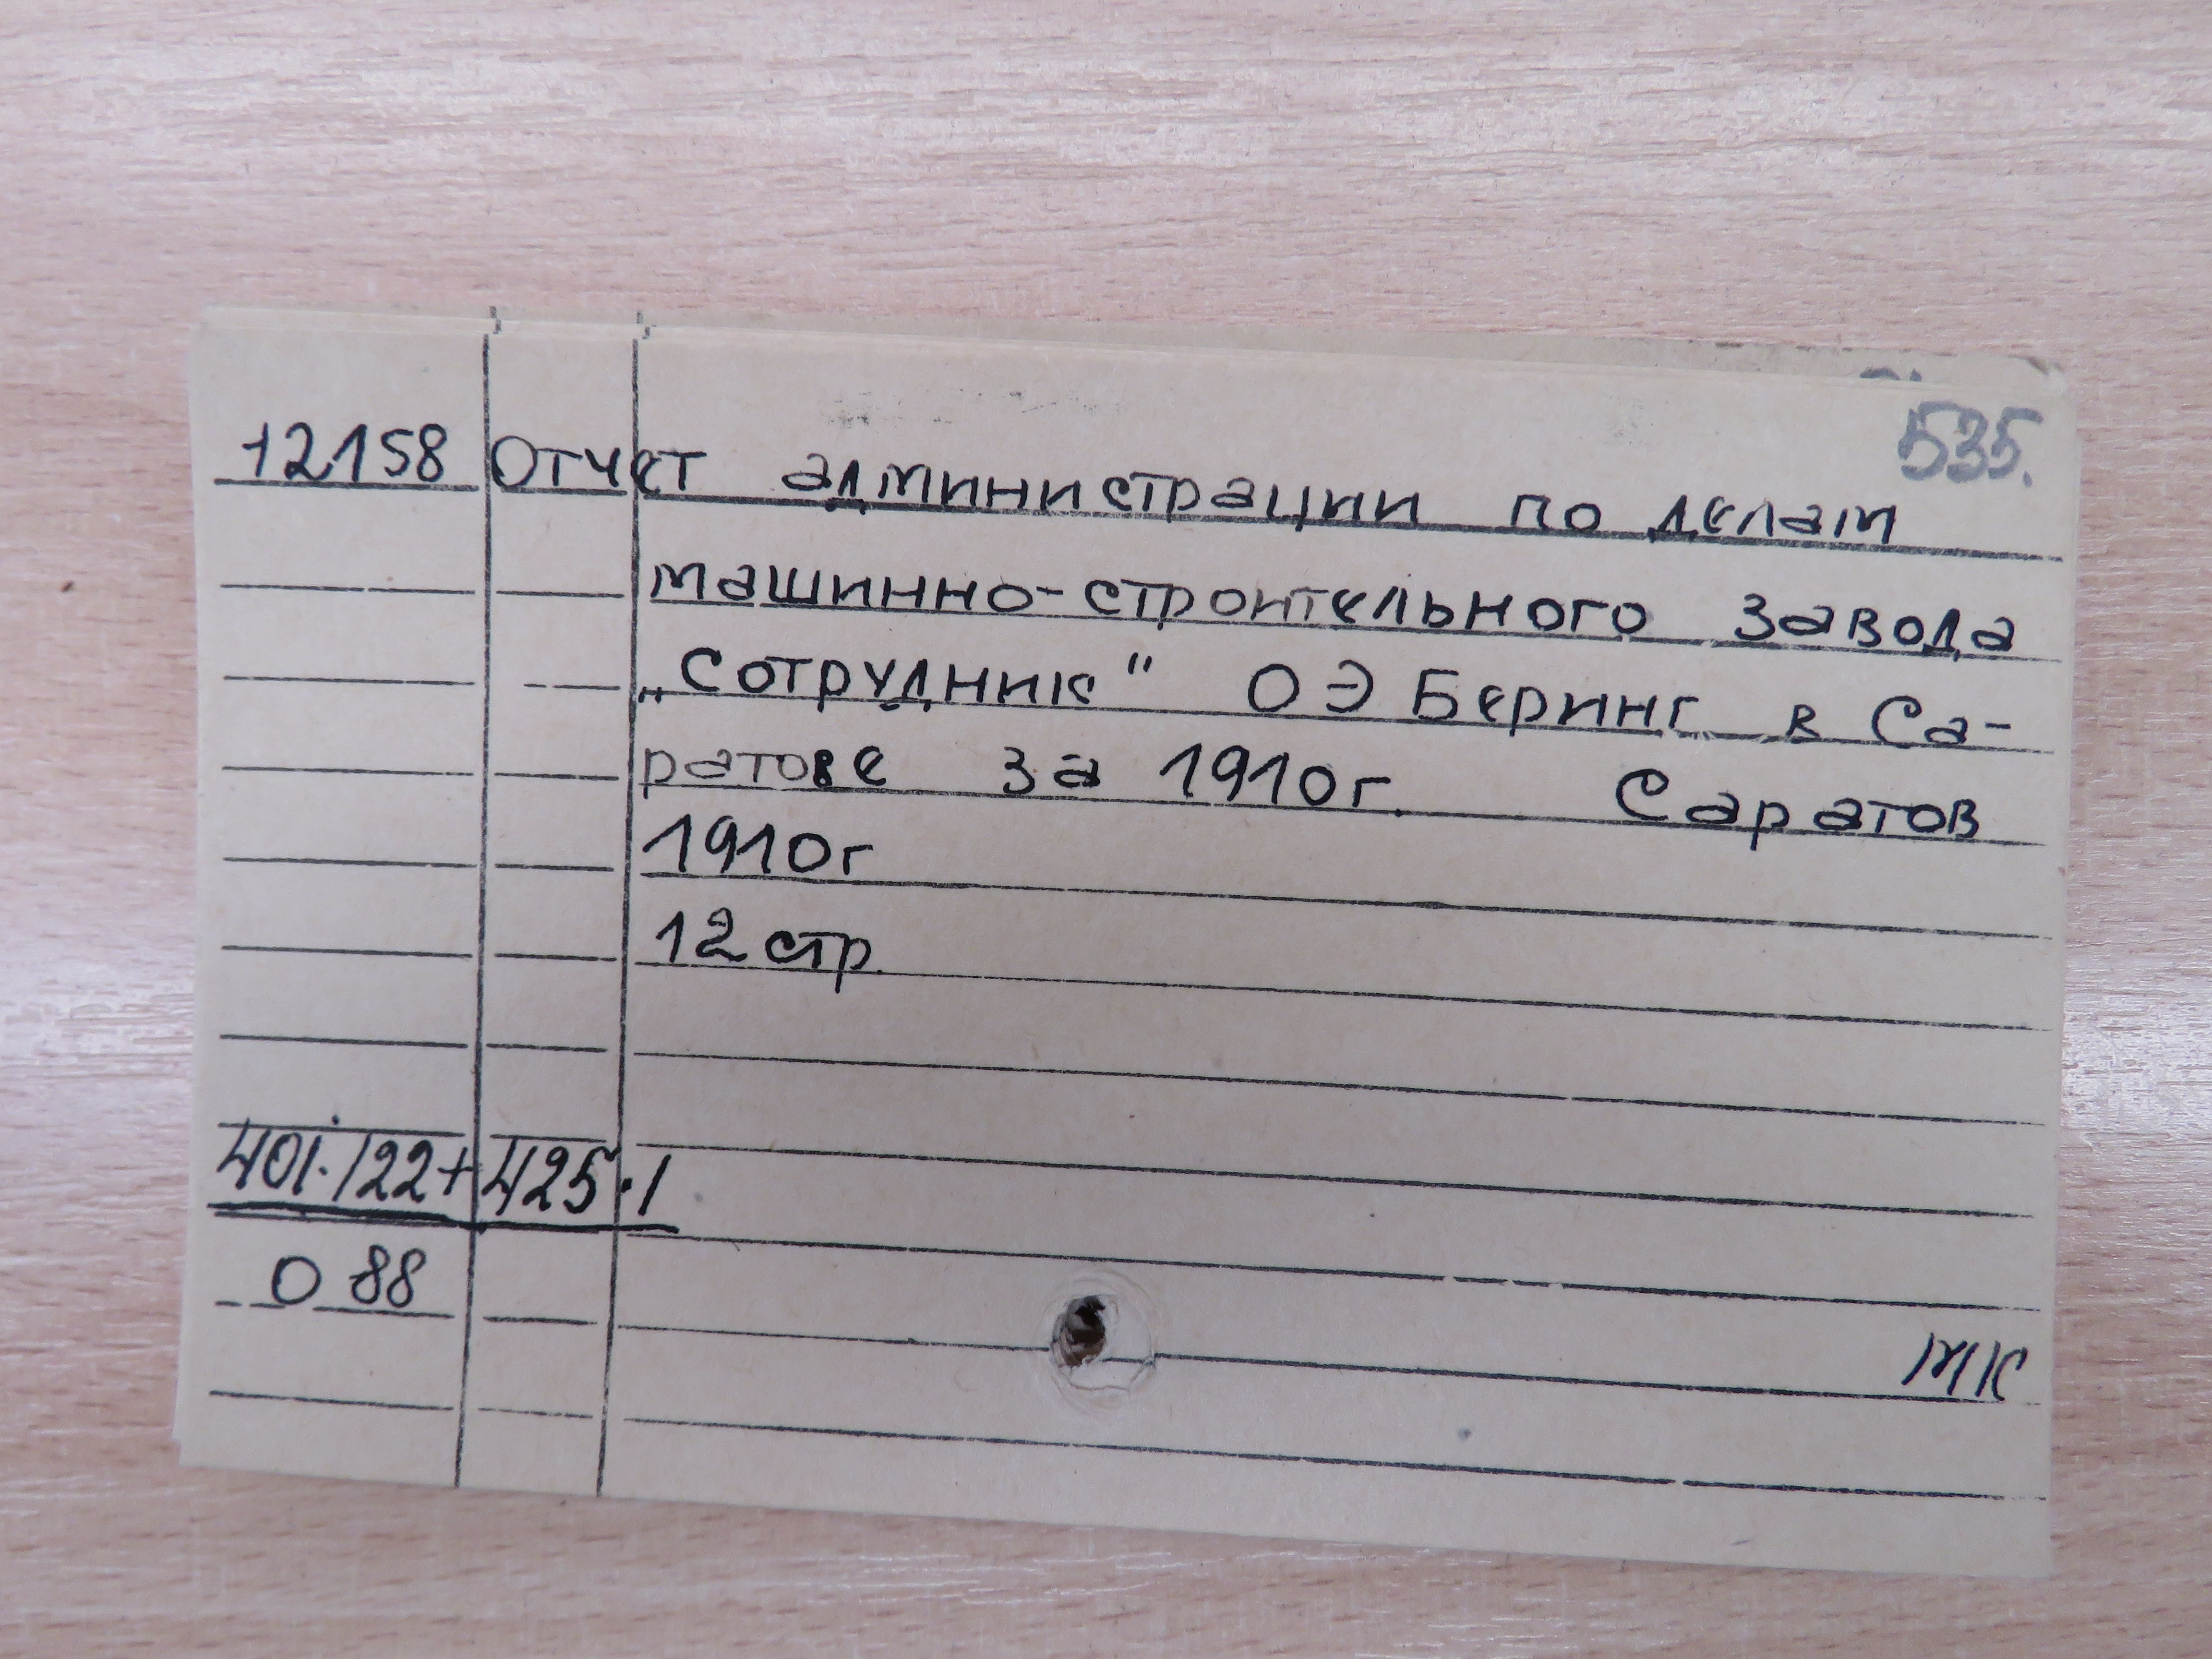 535.
12158 Отчет администрации по делам
машинно-строительного завода
„Сотрудник" ОЭ Беринг в Са-
ратове за 1910г. Саратов
1910г
12 стр.
401.122+425.1
О 88
МК